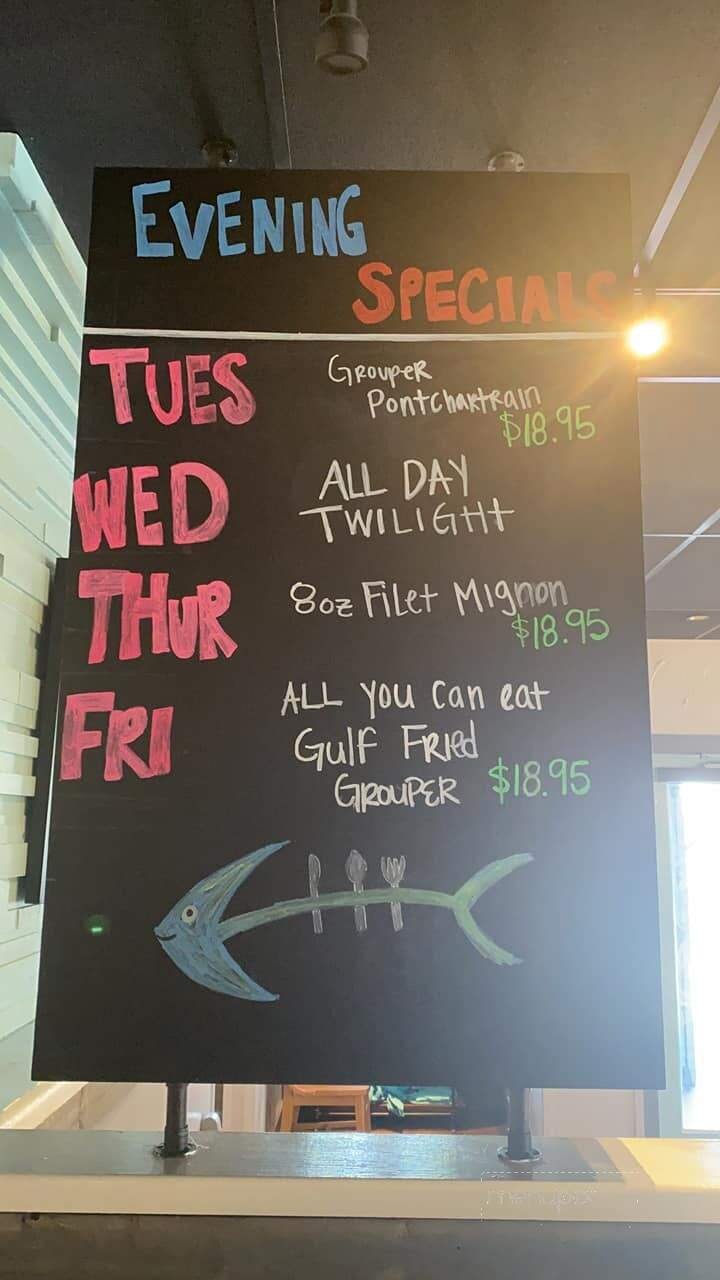 EVENING
SPECIALS
TUES
GROUPER
PONTCHARTRAIN
$18.95
WED
ALL DAY
TWILIGHT
THUR
8oz FiLet Mignon
$18.95
FRI
ALL you can eat
Gulf FRied
GROUPER $18.95
menupix